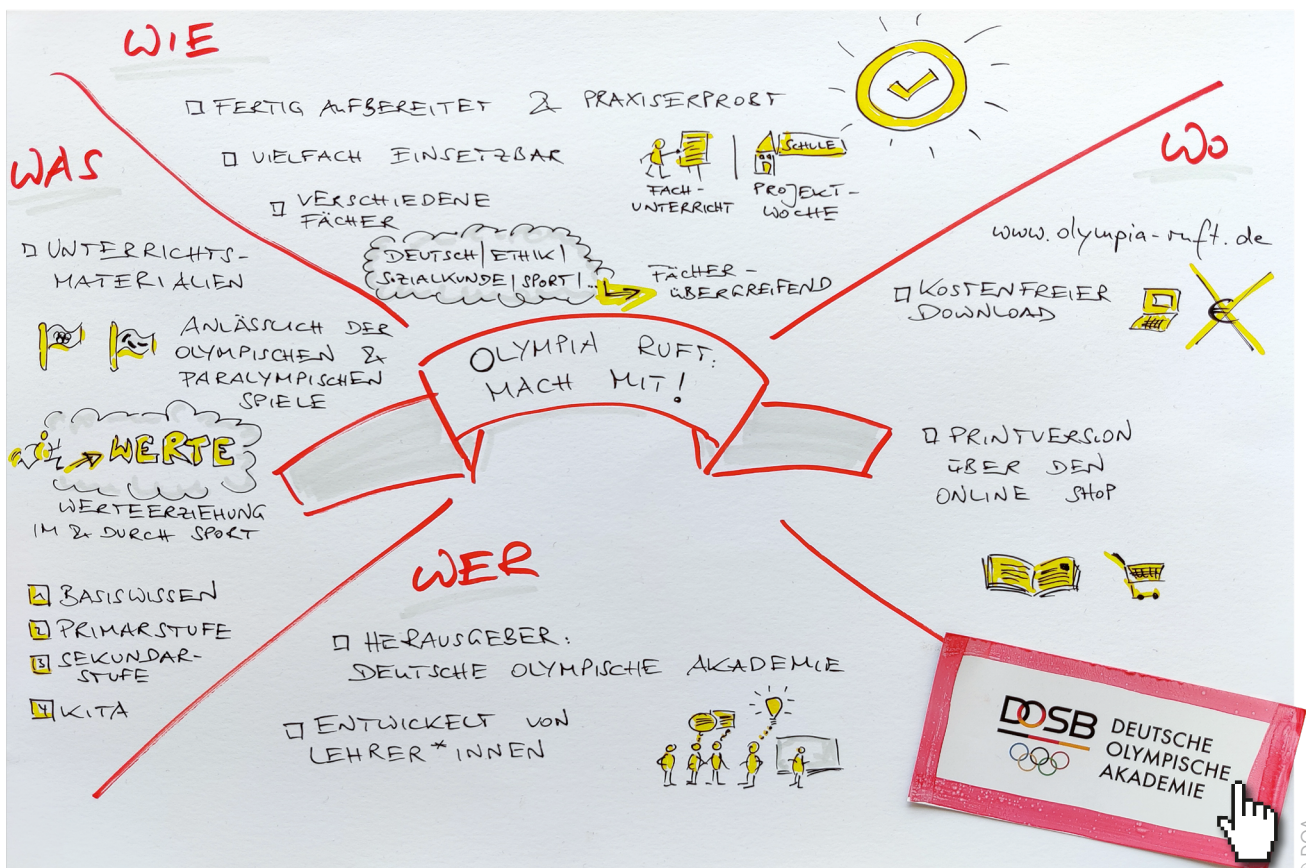 WIE
□ FERTIG AUFBEREITET & PRAXISERPROBT
□ VIELFACH EINSETZBAR
SCHULE
FACH-
UNTERRICHT
PROJEKT-
WOCHE
□ VERSCHIEDENE
FÄCHER
DEUTSCH | ETHIK |
SOZIALKUNDE | SPORT | ...
FÄCHER-
ÜBERGREIFEND
WAS
□ UNTERRICHTS-
MATERIALIEN
ANLÄSSLICH DER
OLYMPISCHEN &
PARALYMPISCHEN
SPIELE
WERTE
WERTEERZIEHUNG
IM & DURCH SPORT
1 BASISWISSEN
2 PRIMARSTUFE
3 SEKUNDAR-
STUFE
4 KITA
OLYMPIA RUFT:
MACH MIT!
WO
www.olympia-ruft.de
□ KOSTENFREIER
DOWNLOAD
€
□ PRINTVERSION
ÜBER DEN
ONLINE SHOP
WER
□ HERAUSGEBER:
DEUTSCHE OLYMPISCHE AKADEMIE
□ ENTWICKELT VON
LEHRER*INNEN
DOSB
DEUTSCHE
OLYMPISCHE
AKADEMIE